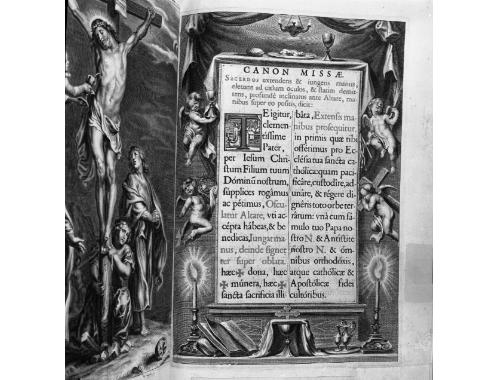 CANON MISSÆ
SACERDOS extendens & iungens manus,
eleuans ad cælum oculos, & statim demit-
tens, profundè inclinatus ante Altare, ma-
nibus super eo positis, dicit:
TE igitur,
clemen-
tissime
Pater,
per Iesum Chri
stum Filium tuum
Dóminũ nostrum,
súpplices rogámus
ac pétimus, Oscu-
latur Altare, vti ac-
cépta hábeas, & be-
nedícas, Iungit ma-
nus, deinde signat
ter super oblata.
hæc ✠ dona, hæc
✠ múnera, hæc ✠
sancta sacrifícia illi
báta, Extensis ma
nibus prosequitur.
in primis quæ tibi
offérimus pro Ec-
clésia tua sancta ca
thólica: quam paci-
ficáre, custodíre, ad-
unáre, & régere di-
gnéris toto orbe ter-
rárum: vnà cum fá-
mulo tuo Papa no-
stro N. & Antístite
nostro N. & óm-
nibus orthodóxis,
atque cathólicæ &
Apostólicæ fidei
cultóribus.